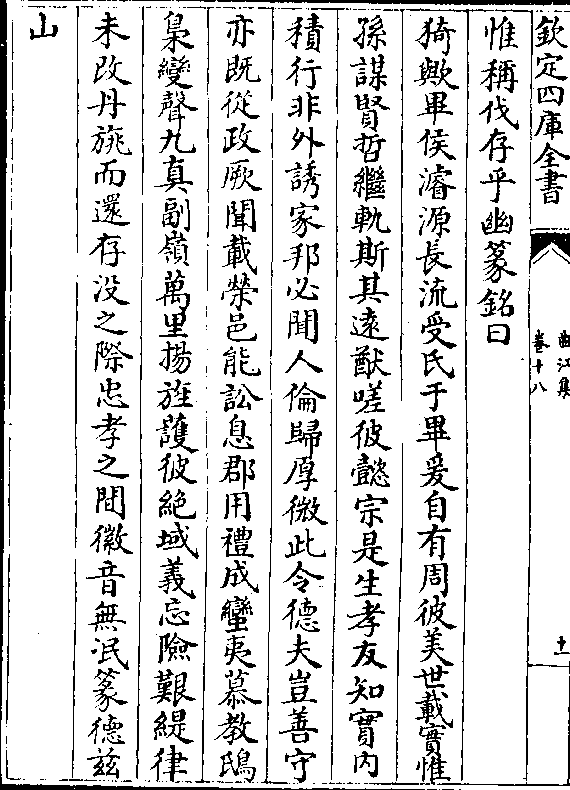 欽定四庫全書
曲江集
卷十八
十一
惟稱伐存乎幽篆銘曰
猗歟畢侯濬源長流受氏于畢爰自有周彼美世載實惟
孫謀賢哲繼軌斯其遠猷嗟彼懿宗是生孝友知實内
積行非外誘家邦必聞人倫歸厚微此令德夫豈善守
亦既從政厥聞載榮邑能訟息郡用禮成蠻夷慕教鴟
梟變聲九真副嶺萬里揚旌䕶彼絶域義忘險艱緹律
未改丹旐而還存没之際忠孝之間徽音無泯篆德兹
山